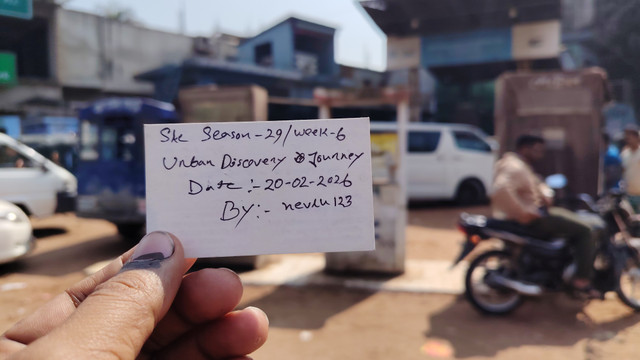 Skc Season-29/week-6
Urban Discovery & Journey
Date:-20-02-2026
By:-